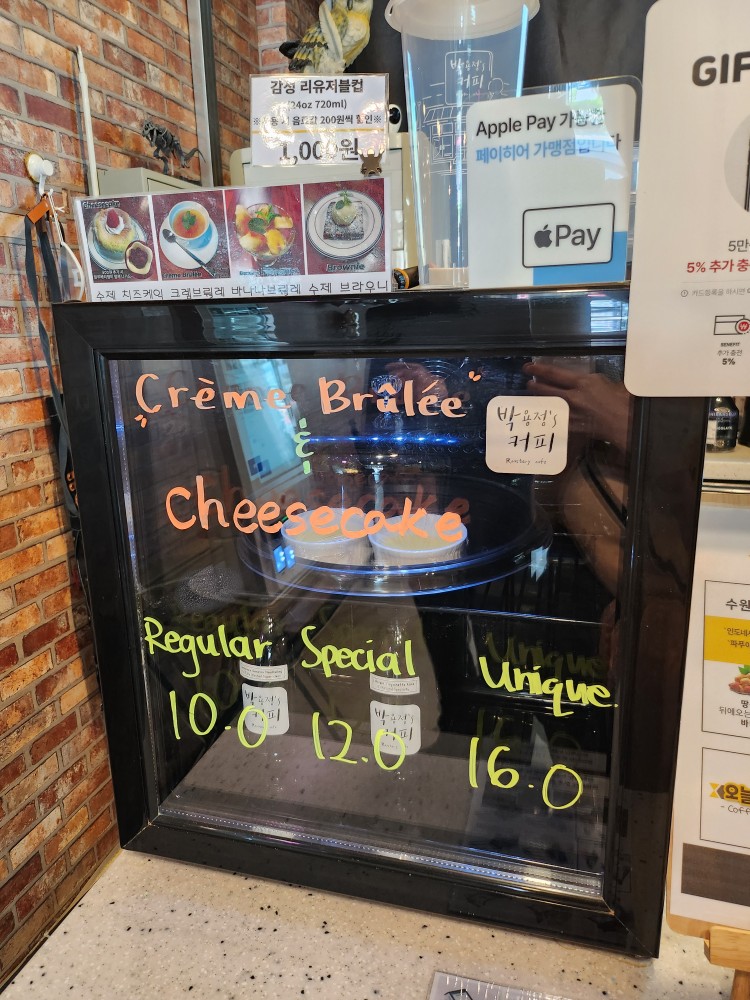 감성 리유저블컵
(24oz 720ml)
200원씩 할인※
1,000원
박용정's
커피
Apple Pay 가
페이히어 가맹점입니다
Pay
GIF
5만
5% 추가 충
BENEFIT
추가 충전
5%
Cheesecake
Crème Brûlée
Brownie
수제 치즈케익 크렘브륄레 바나나브륄레 수제 브라우니
"Crème Brûlée"
&
Cheesecake
박용정's
커피
Roastery cafe
Regular Special Unique
10.0 12.0 16.0
박용정's
커피
박용정's
커피
수원
땅
뒤에오는
바
오늘
- Coff